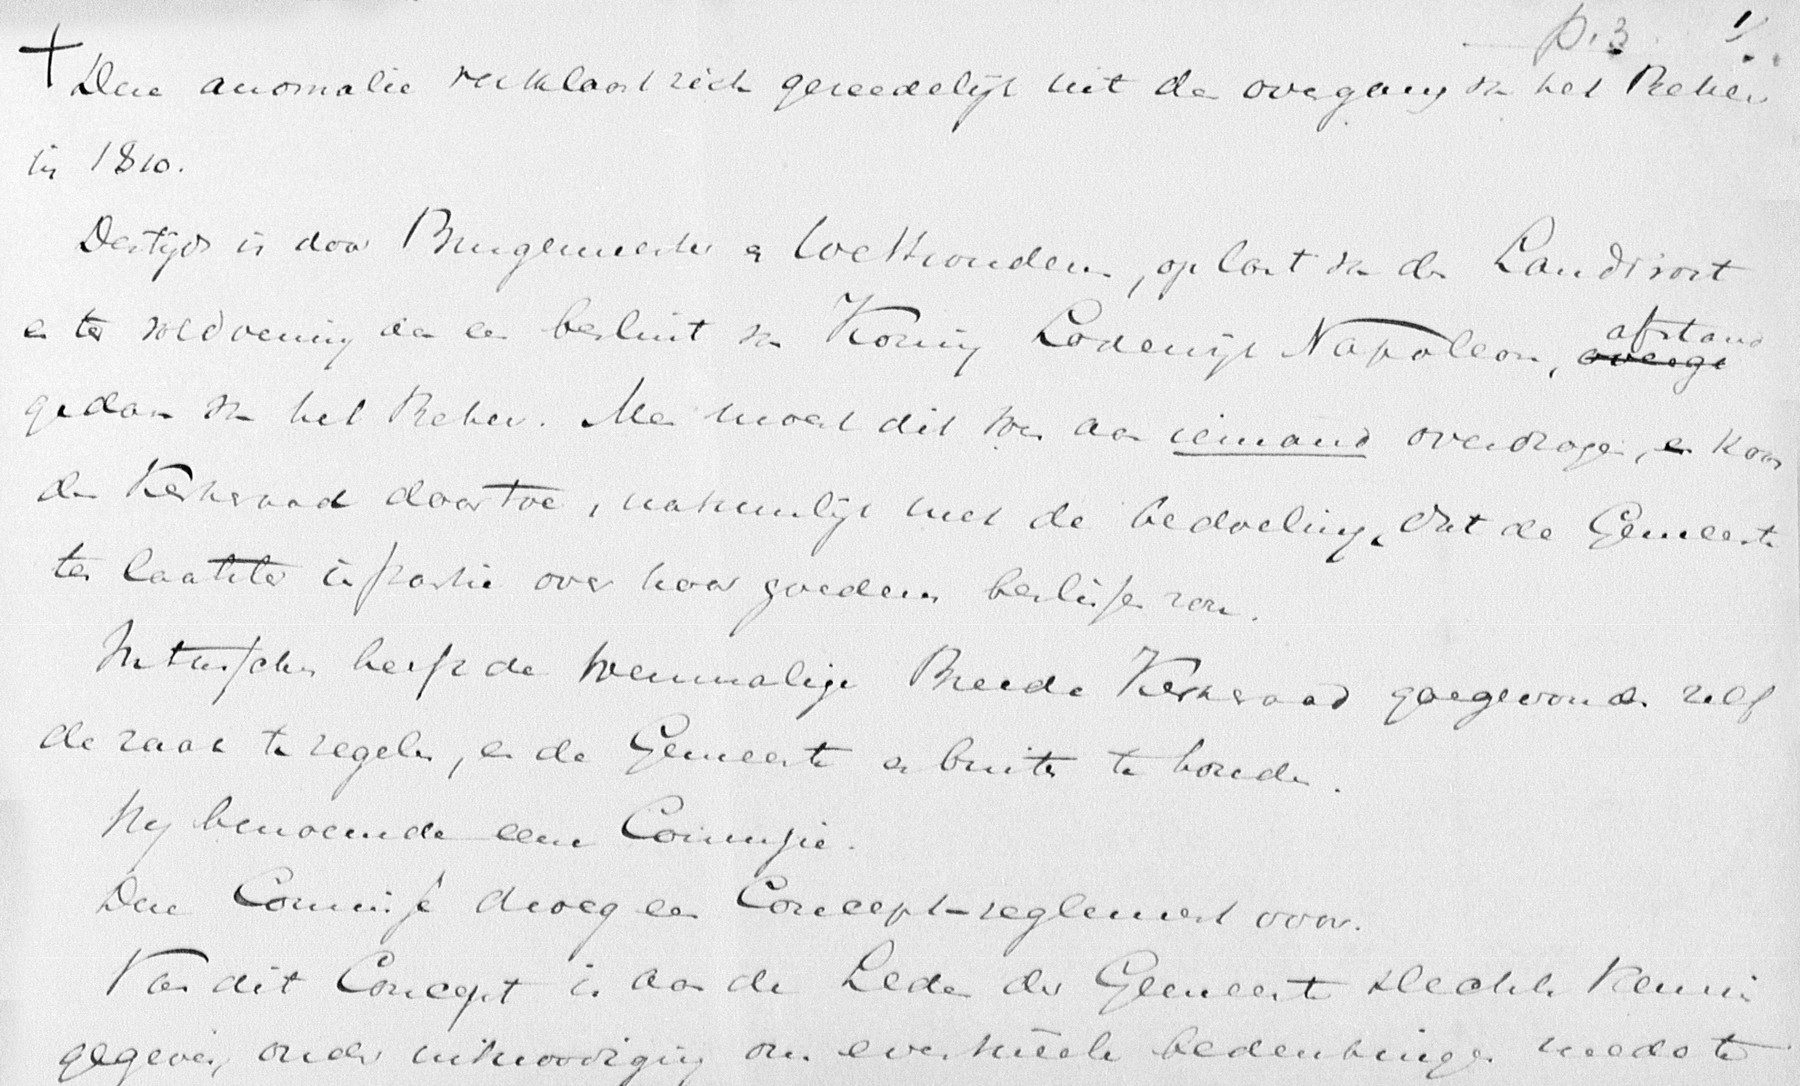 p. 3. 1/.
† Deze anomalie verklaart zich gereedelijk uit de overgang van het Beheer
in 1810.
Destijds is door Burgemeester en Wethouderen, op last van den Landdrost
en ter voldoening aan een besluit van Koning Lodewijk Napoleon, ~~overge~~ afstand
gedaan van het Beheer. Men moest dit toen aan iemand overdragen, en koos
den Kerkeraad daartoe, natuurlijk met de bedoeling, dat de Gemeente
ten laatste in positie over haar goederen beslissen zou.
Intusschen heeft de toenmalige Breede Kerkeraad goedgevonden zelf
de zaak te regelen, en de Gemeente er buiten te houden.
Hij benoemde eene Commissie.
Deze Commissie droeg een Concept-reglement voor.
Van dit Concept is aan de Leden der Gemeente slechts kennis
gegeven, onder uitnoodiging om eventueele bedenkingen mede te